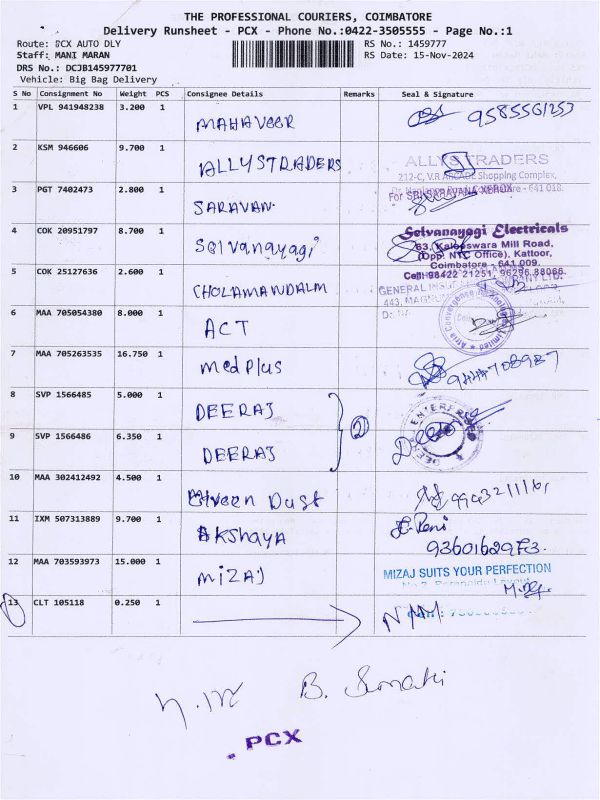 THE PROFESSIONAL COURIERS, COIMBATORE
Delivery Runsheet - PCX - Phone No.:0422-3505555 - Page No.:1
Route: PCX AUTO DLY RS No.: 1459777
Staff: MANI MARAN RS Date: 15-Nov-2024
DRS No.: DCJB145977701
Vehicle: Big Bag Delivery
S No Consignment No Weight PCS Consignee Details Remarks Seal & Signature
1 VPL 941948238 3.200 1 MAHAVEER 9585561253
2 KSM 946606 9.700 1 ALLYSTRADERS
ALLYS TRADERS
212-C, V.R ARCADE Shopping Complex,
3 PGT 7402473 2.800 1 SARAVAN.
For SRI SARAVANA XEROX
4 COK 20951797 8.700 1 Selvanayagi
Selvanayagi Electricals
63, Kaleeswara Mill Road,
(Opp. NTC Office), Kattoor,
Coimbatore - 641 009.
Cell: 98422 21251, 96296 88066
5 COK 25127636 2.600 1 CHOLAMANDALM
6 MAA 705054380 8.000 1 ACT
7 MAA 705263535 16.750 1 medplus
8 SVP 1566485 5.000 1 DEERAJ
2
9 SVP 1566486 6.350 1 DEERAJ
10 MAA 302412492 4.500 1 Dust
11 IXM 507313889 9.700 1 Akshaya
9360162973.
12 MAA 703593973 15.000 1 MIZAJ
MIZAJ SUITS YOUR PERFECTION
13 CLT 105118 0.250 1
PCX